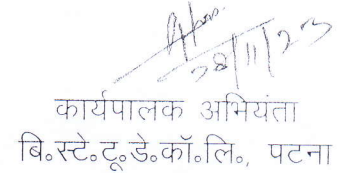 28/11/23
कार्यपालक अभियंता
बि॰स्टे॰टू॰डे॰कॉ॰लि॰, पटना